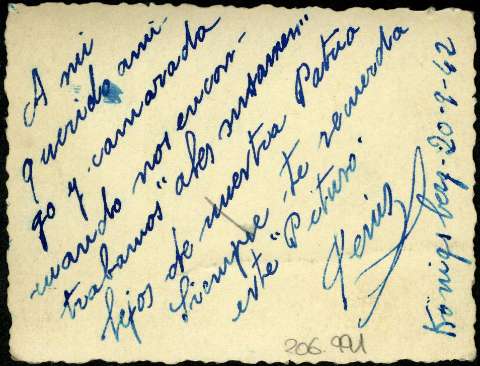 A mi
querido ami-
go y camarada
cuando nos encon-
trabamos
lejos de nuestra Patria
Siempre te recuerda
este "Pituso".
Königsberg-20-9-42
206.991